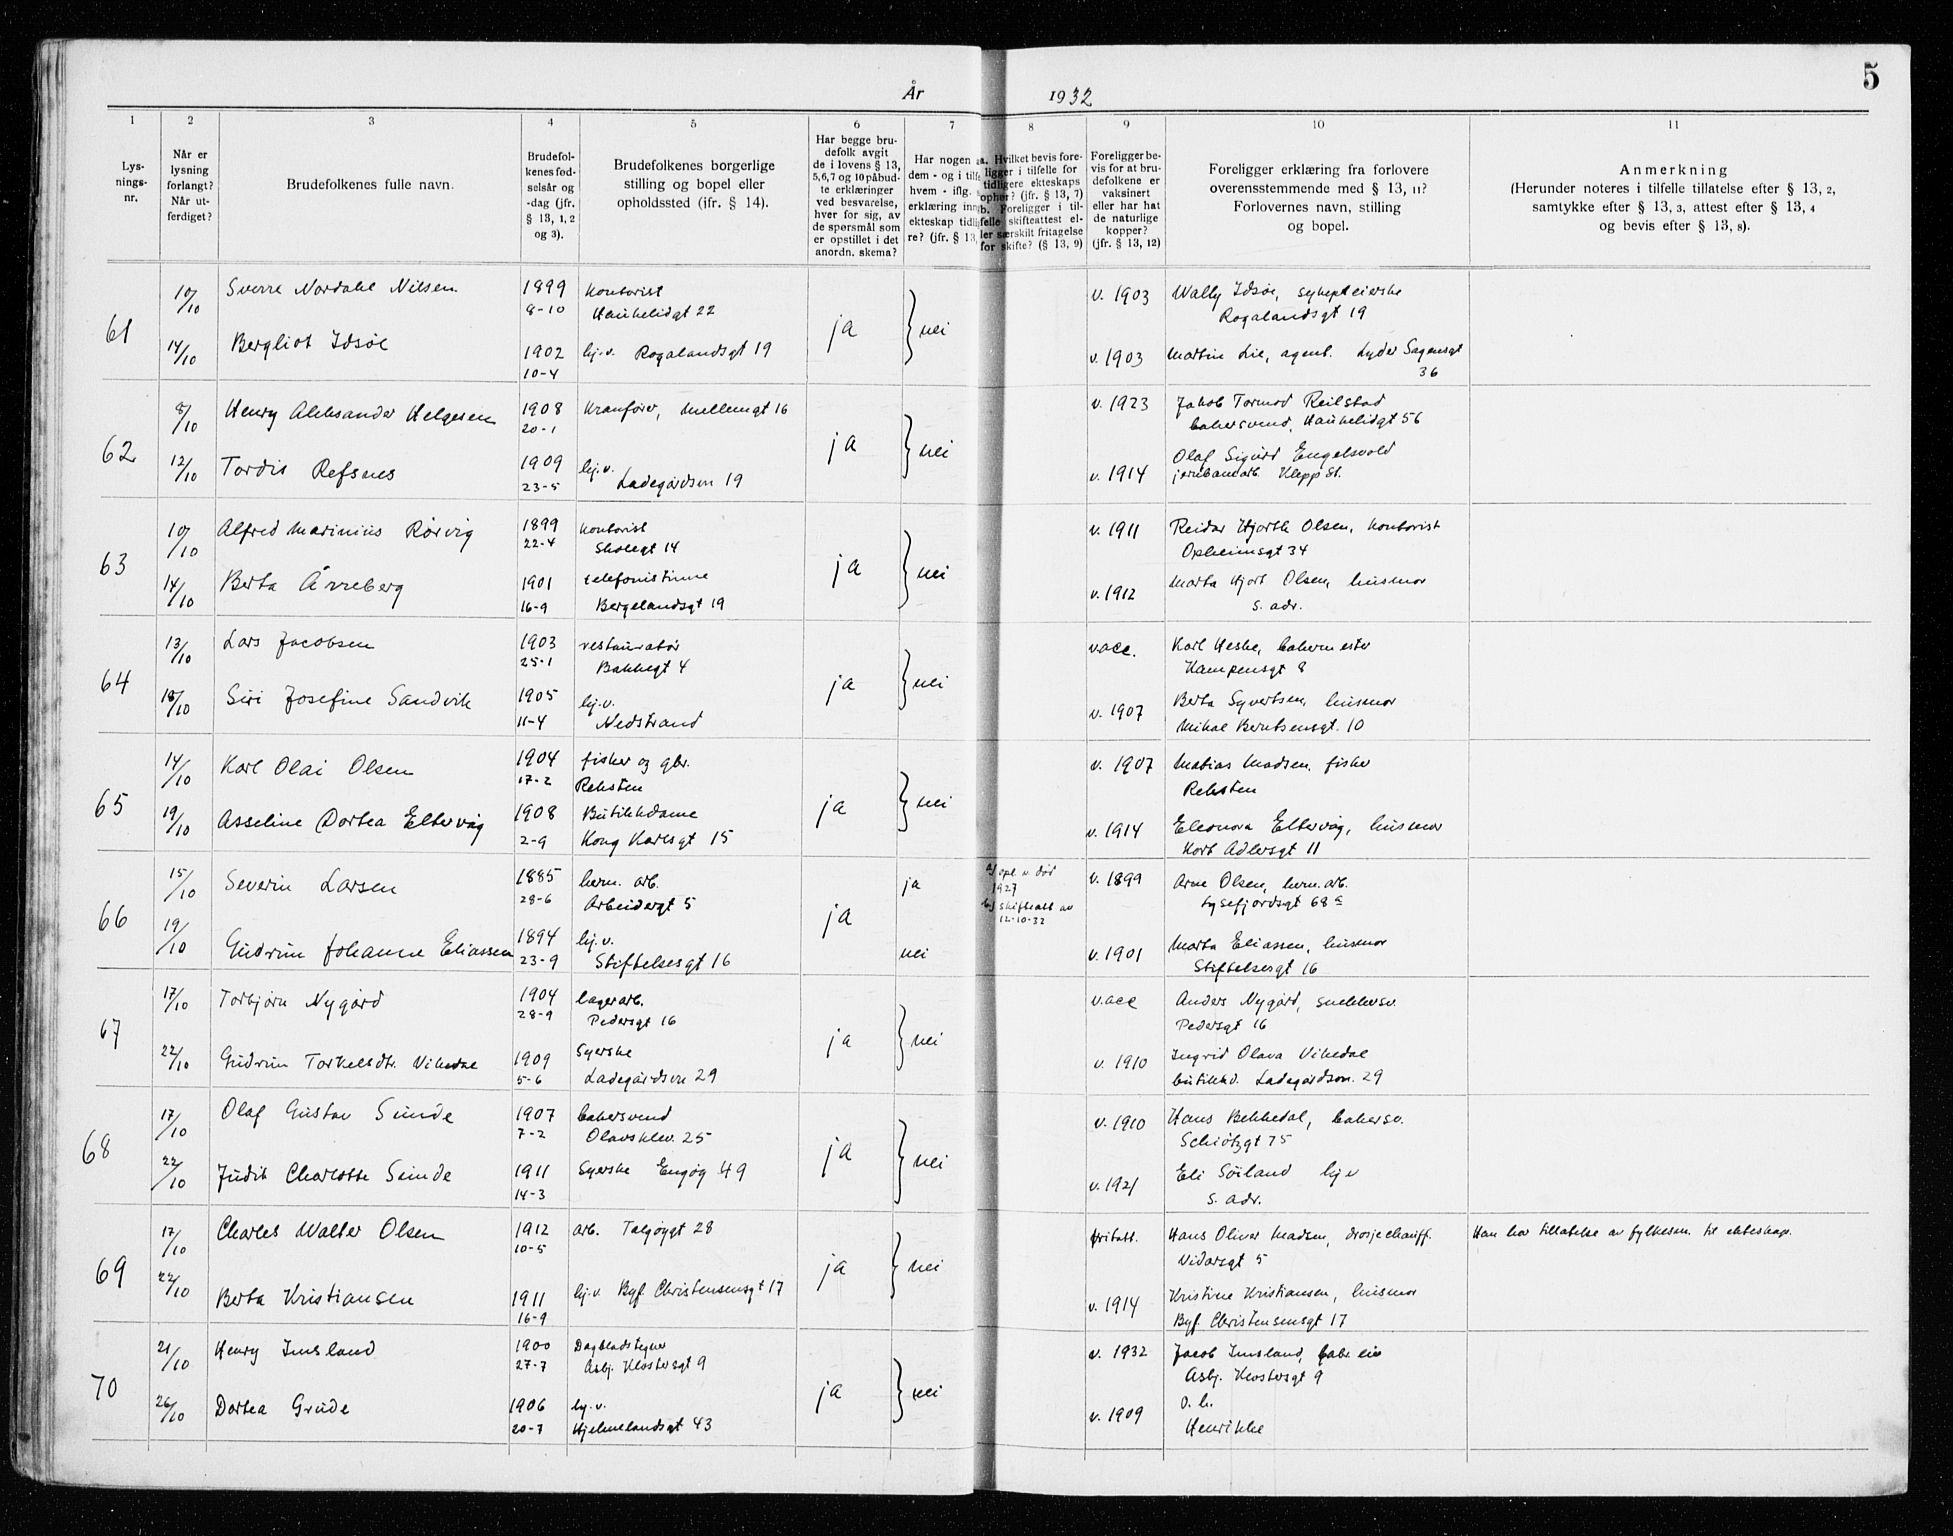 5
År 1932
1 2 3 4 5 6 7 8 9 10 11
Lys-
nings-
nr.
Når er
lysning
forlangt?
Når ut-
ferdiget?
Brudefolkenes fulle navn.
Brudefol-
kenes fød-
selsår og
-dag (jfr.
§ 13, 1, 2
og 3).
Brudefolkenes borgerlige
stilling og bopel eller
opholdssted (jfr. § 14).
Har begge bru-
defolk avgit
de i lovens § 13,
5, 6, 7 og 10 påbud-
te erklæringer
ved besvarelse,
hver for sig, av
de spørsmål som
er opstillet i det
anordn. skema?
Har nogen a
dem - og i tilf
hvem - iflg.
erklæring inn
ekteskap tidli
re? (jfr. § 13,
a. Hvilket bevis fore-
ligger i tilfelle for
tidligere ekteskaps
ophør? (jfr. § 13, 7)
b. Foreligger i til-
felle skifteattest el-
ler særskilt fritagelse
for skifte? (§ 13, 9)
Foreligger be-
vis for at bru-
defolkene er
vaksinert
eller har hat
de naturlige
kopper?
(jfr. § 13, 12)
Foreligger erklæring fra forlovere
overensstemmende med § 13, 11?
Forlovernes navn, stilling
og bopel.
Anmerkning
(Herunder noteres i tilfelle tillatelse efter § 13, 2,
samtykke efter § 13, 3, attest efter § 13, 4
og bevis efter § 13, 8).
61 10/10 Sverre Nordahl Nilsen 1899 kontorist ja nei v. 1903 Wally Idsøe, sykepleierske
8-10 Haukelidgt 22 Rogalandsgt 19
14/10 Bergliot Idsøe 1902 hj.v. Rogalandsgt 19 v. 1903 Martin Lie, agent. Lyder Sagensgt
10-4 36
62 8/10 Henry Aleksander Helgesen 1908 Kranfører, Mellemgt 16 ja nei v. 1923 Jakob Tormod Reilstad
20-1 bakersvend, Haukelidgt 56
12/10 Tordis Refsnes 1909 hj.v. v. 1914 Olaf Sigurd Engelsvold
23-5 Ladegårdsvn 19 jernbanearb. Klepp st.
63 10/10 Alfred Marinius Rørvig 1899 kontorist ja nei v. 1911 Reidar Hjorth Olsen, kontorist
22-4 Skolegt 14 Opheimsgt 34
14/10 Berta Årreberg 1901 telefonistinne v. 1912 Marta Hjort Olsen, husmor
16-9 Bergelandsgt 19 s. adr.
64 13/10 Lars Jacobsen 1903 restauratør ja nei vacc. Karl Heske, bakermester
25-1 Bakkegt 4 Kampensgt 8
18/10 Siri Josefine Sandvik 1905 hj.v. v. 1907 Berta Syvertsen, husmor
11-4 Nedstrand Mikal Berntsensgt. 10
65 14/10 Karl Olai Olsen 1904 fisker og gbr. ja nei v. 1907 Matias Madsen, fisker
17-2 Reksten Reksten
19/10 Asseline Dortea Eltervåg 1908 Butikkdame v. 1914 Eleonora Eltervåg, husmor
2-9 Kong Karlsgt 15 Kort Adlersgt 11
66 15/10 Severin Larsen 1885 herm. arb. ja ja a) opl. v. død v. 1899 Arne Olsen, herm. arb.
28-6 Arbeidergt 5 1927 Lysefjordsgt 68 a
b) skifteatt av
12-10-32
19/10 Gudrun Johanne Eliassen 1894 hj.v. nei v. 1901 Marta Eliassen, husmor
23-9 Stiftelsesgt 16 Stiftelsesgt 16
67 17/10 Torbjørn Nygård 1904 lagerarb. ja nei vacc Anders Nygård, snekkersv.
28-9 Pedersgt 16 Pedersgt 16
22/10 Gudrun Torkelsdtr. Vikedal 1909 Syerske v. 1910 Ingrid Olava Vikedal
5-6 Ladegårdsvn 29 butikkd. Ladegårdsvn. 29
68 17/10 Olaf Gustav Sunde 1907 bakersvend ja nei v. 1910 Hans Bekkedal, bakersv.
7-2 Olavsklev. 25 Schiøtzgt 75
22/10 Judit Charlotte Sunde 1911 Syerske Engøg 49 v. 1921 Eli Söiland hj v
14-3 s. adr.
69 17/10 Charles Walter Olsen 1912 arb. Talgøygt 28 ja nei fritatt. Hans Oliver Madsen, drosjechauff. Han har tillatelse av fylkesm. til ekteskap.
10-5 Vidarsgt 5
22/10 Berta Kristiansen 1911 hj.v. Byf. Christensensgt 17 v. 1914 Kristine Kristiansen, husmor
16-9 Byf. Christensensgt 17
70 21/10 Henry Imsland 1900 Dagbladstegner ja nei v. 1932 Jacob Imsland, fabr. eier
27-7 Asbj. Klostersgt 9 Asbj. Klostersgt 9
26/10 Dortea Grude 1906 hj.v. v. 1909 o. h.
20-7 Hjelmelandsgt 43 Henrikke